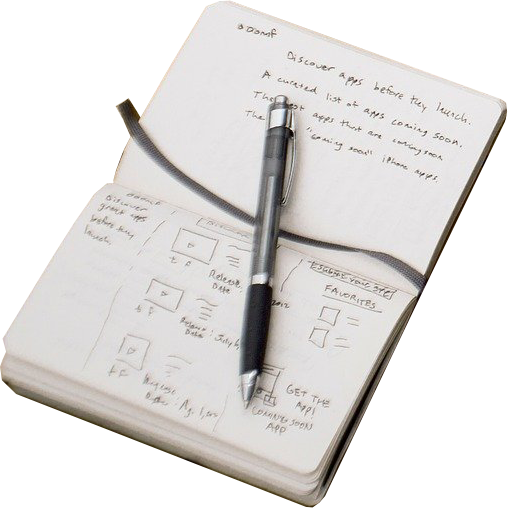 oomf
Discover apps before they launch.
A curated list of apps coming soon.
The apps that are coming soon
The "coming soon" iPhone apps.
oomf
Discover
great apps
before they
launch.
Release
Date
t f
Release: July
Date
t f
Release
Date:
t f
FAVORITES
GET THE
APP!
COMING SOON
APP